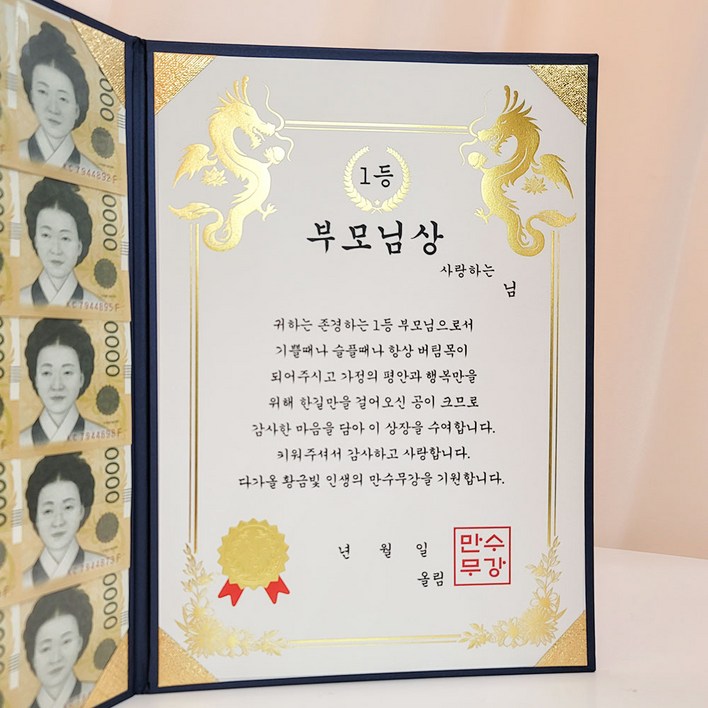 0000
KC7944892F
0000
KC7944895F
0000
KC7944894F
0000
0000
1등
부모님상
사랑하는
님
귀하는 존경하는 1등 부모님으로서
기쁠때나 슬플때나 항상 버팀목이
되어주시고 가정의 평안과 행복만을
위해 한길만을 걸어오신 공이 크므로
감사한 마음을 담아 이 상장을 수여합니다.
키워주셔서 감사하고 사랑합니다.
다가올 황금빛 인생의 만수무강을 기원합니다.
년 월 일
올림
만수
무강